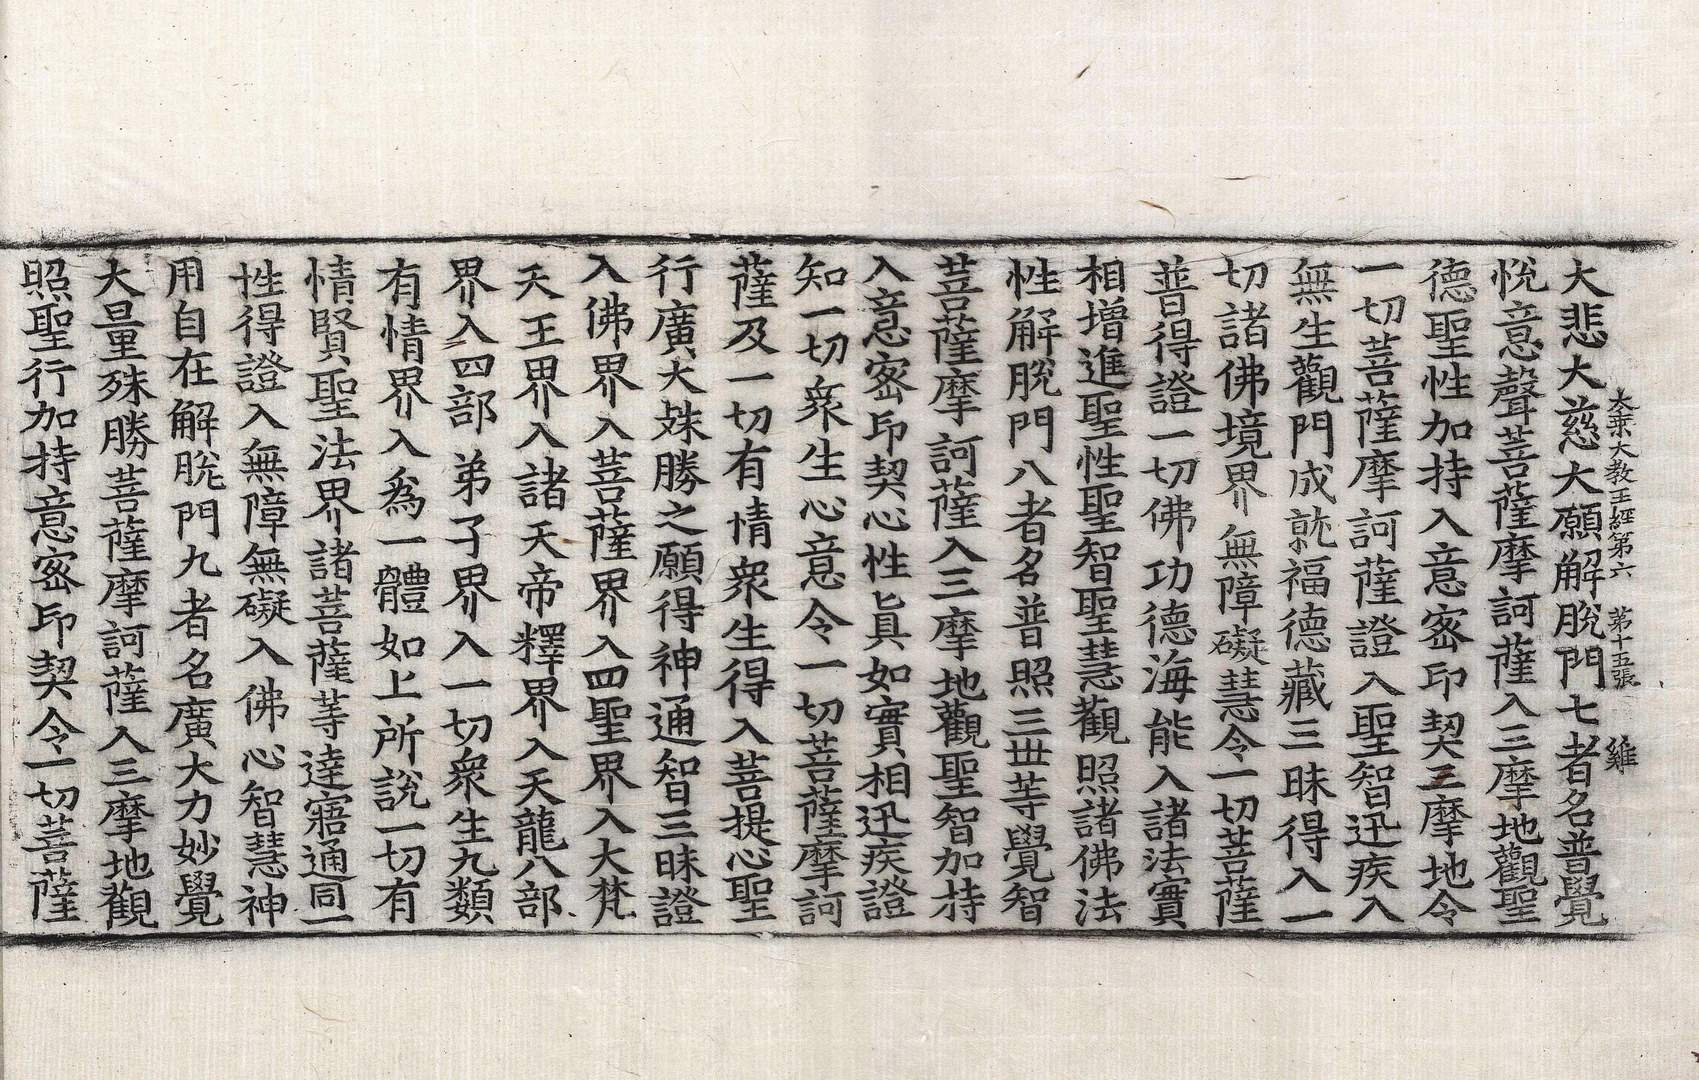 大乘大教王經第六 第十五張 雞
大悲大慈大願解脫門七者名普覺
悅意聲菩薩摩訶薩入三摩地觀聖
德聖性加持入意密印契三摩地令
一切菩薩摩訶薩證入聖智迅疾入
無生觀門成就福德藏三昧得入一
切諸佛境界無障礙慧令一切菩薩
普得證一切佛功德海能入諸法實
相增進聖性聖智聖慧觀照諸佛法
性解脫門八者名普照三世等覺智
菩薩摩訶薩入三摩地觀聖智加持
入意密印契心性真如實相迅疾證
知一切衆生心意令一切菩薩摩訶
薩及一切有情衆生得入菩提心聖
行廣大殊勝之願得神通智三昧證
入佛界入菩薩界入四聖界入大梵
天王界入諸天帝釋界入天龍八部
界入四部弟子界入一切衆生九類
有情界入爲一體如上所說一切有
情賢聖法界諸菩薩等達寤通同一
性得證入無障無礙入佛心智慧神
用自在解脫門九者名廣大力妙覺
大量殊勝菩薩摩訶薩入三摩地觀
照聖行加持意密印契令一切菩薩